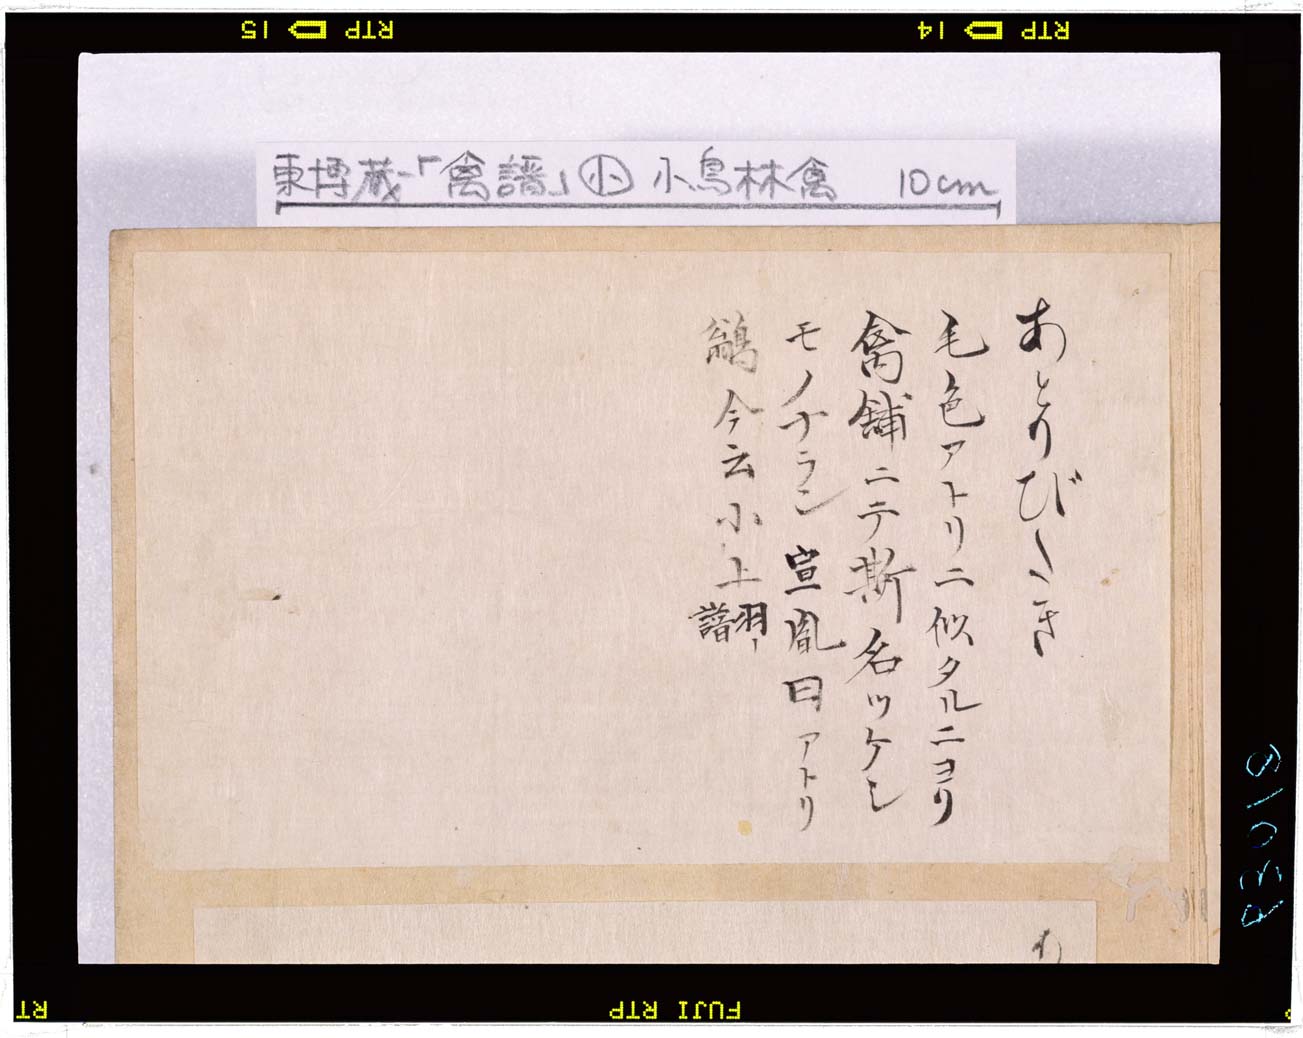 RTP 14
RTP 15
東博蔵「禽譜」小 小鳥林禽 10cm
あとりびたき
毛色アトリニ似タルニヨリ
禽舗ニテ斯名ツケシ
モノナラン 宣胤曰アトリ
鷁今云小上
羽
譜
FUJI RTP
RT
R3019